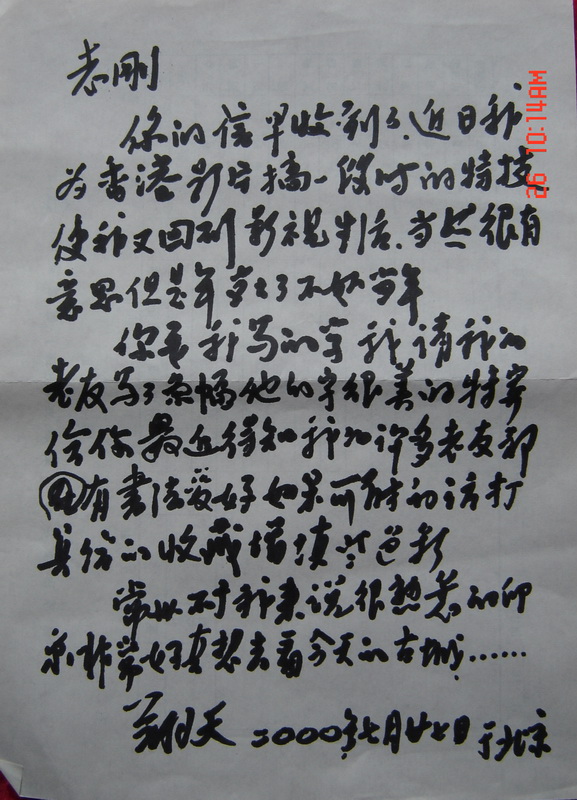 志刚
你的信早收到了.近日我
为香港影片搞一段时的特技
使我又回到影视制片.当然很有
意思但是年岁大了不如当年
你要我写的字我请我的
老友写了条幅他的字很美的特寄
给你最近得知我的许多老友都
有书法爱好如果可能的话打
的收藏增添色彩
常州对我来说很熟悉的印
象非常好真想去看今天的古城……
翔天 二000年七月廿七日于北京
26 10:14AM